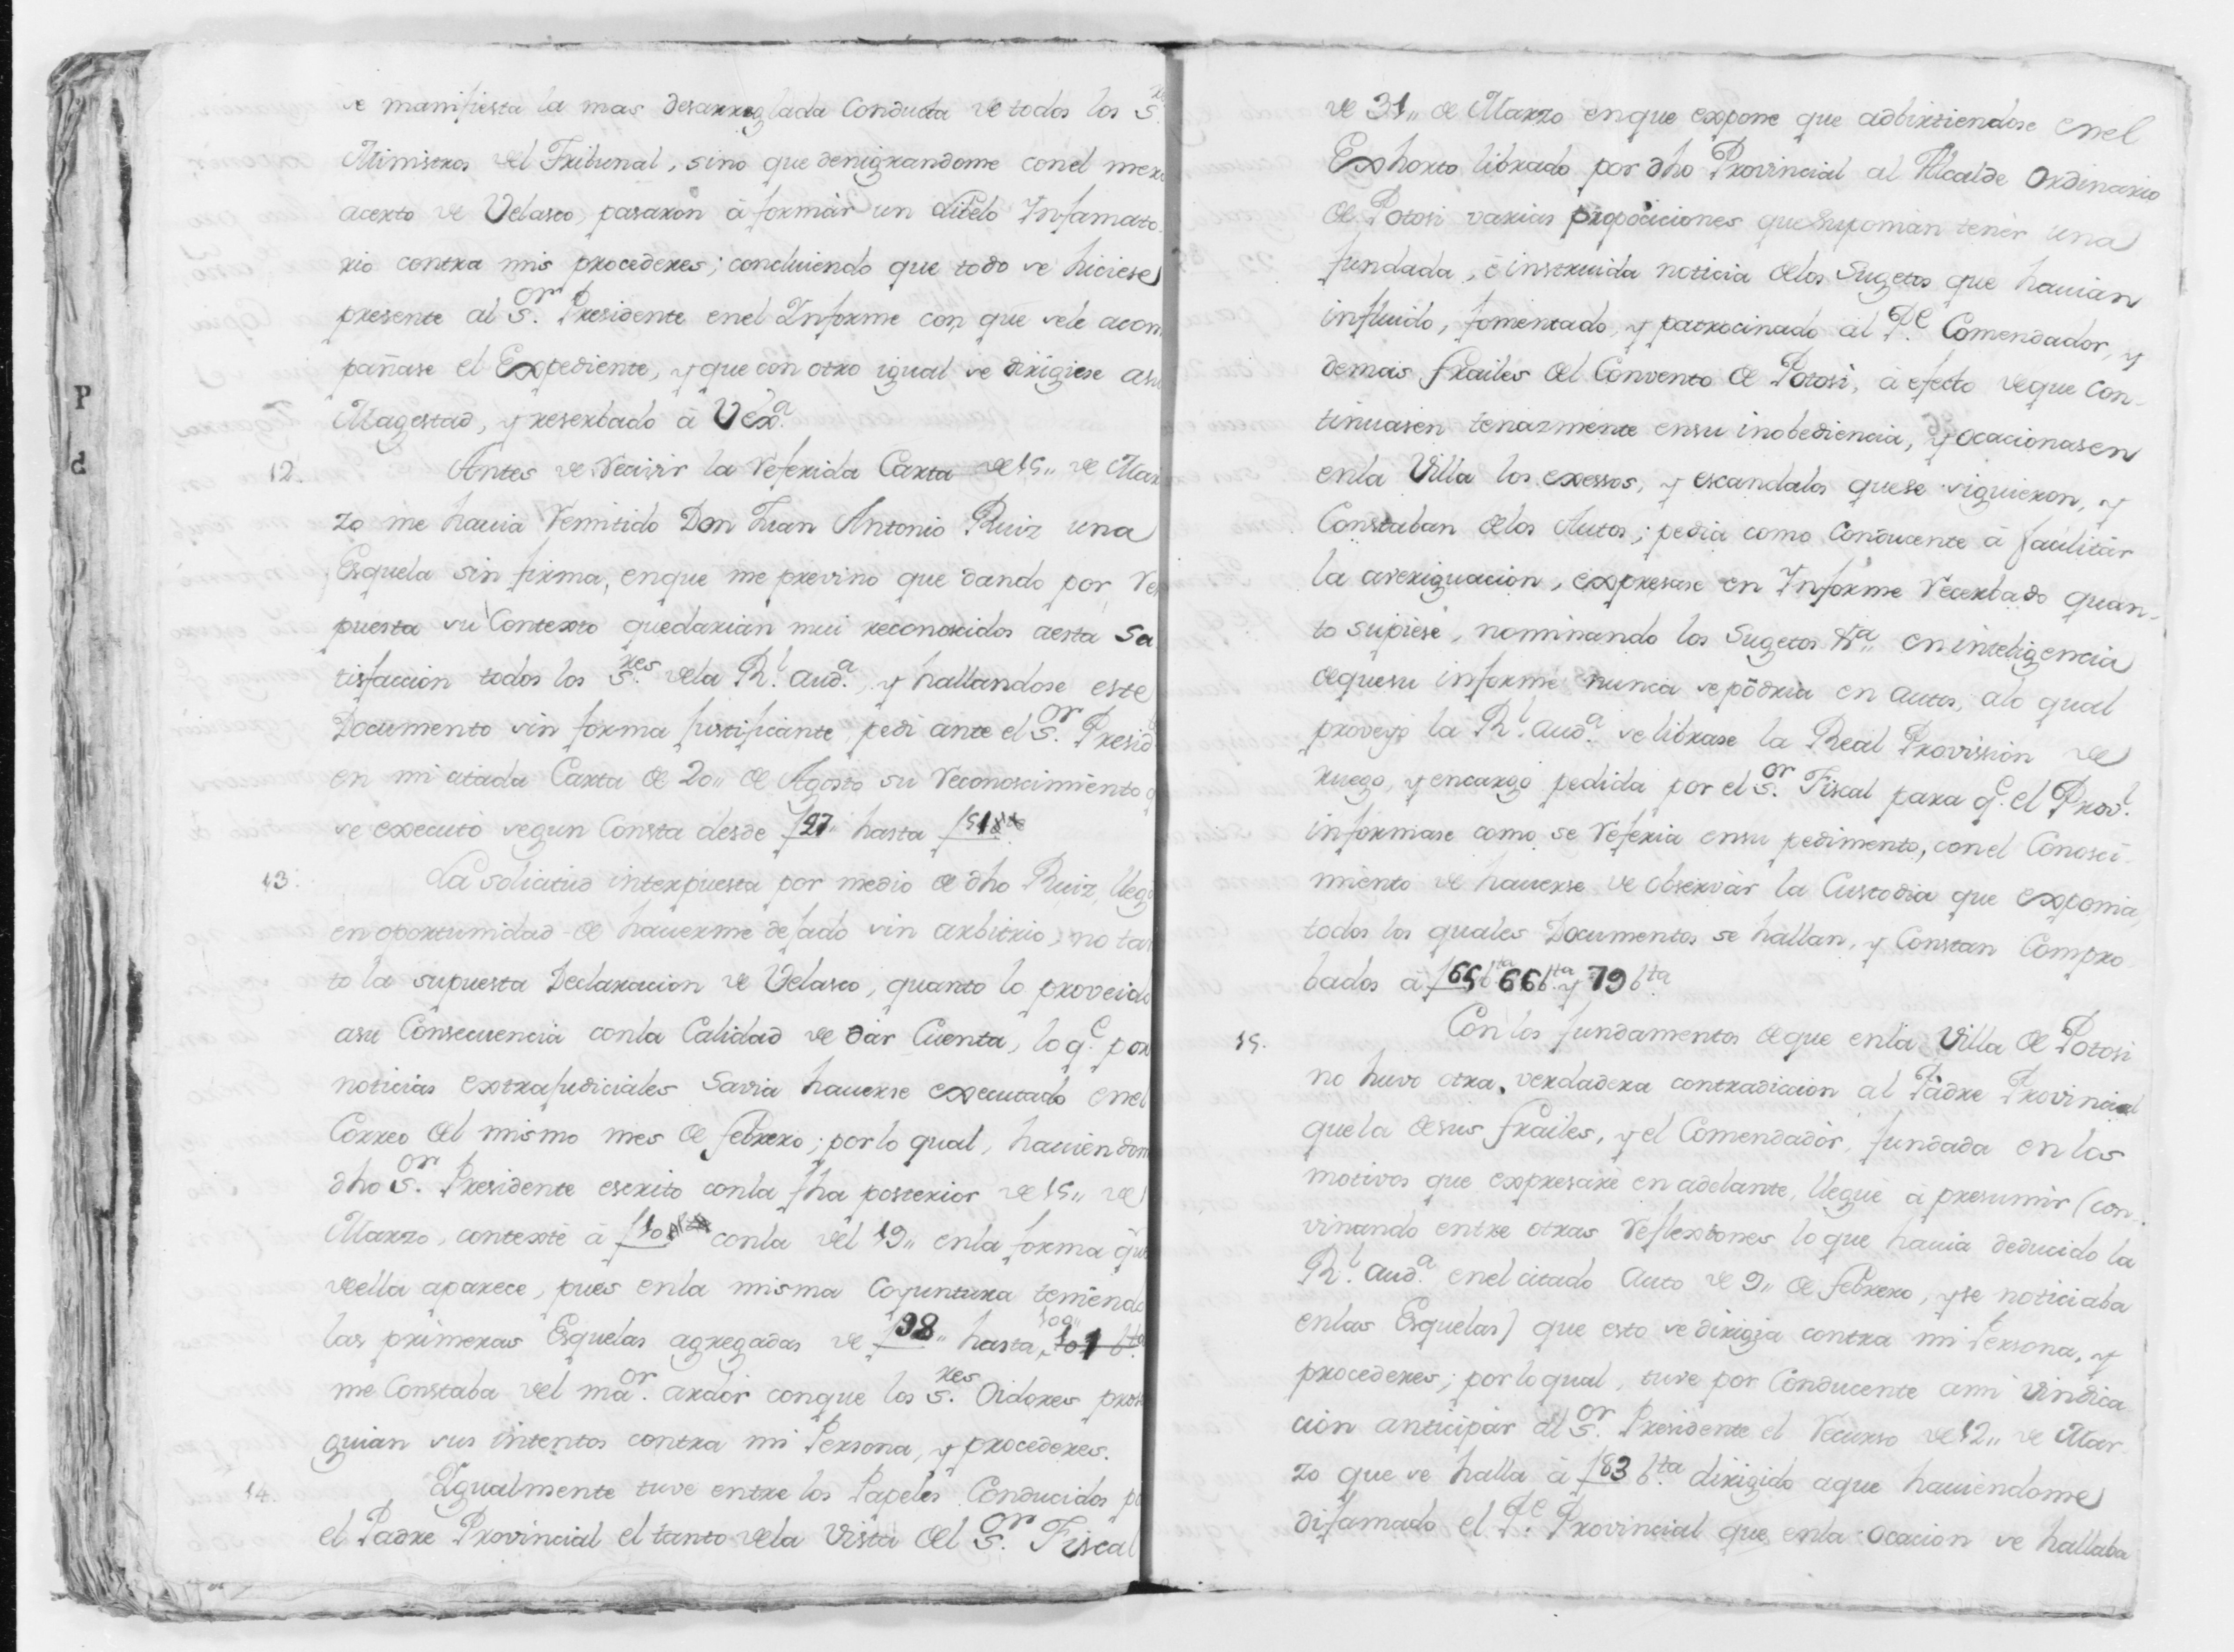 se manifiesta la mas desarreglada Conducta de todos los S.res
Ministros del Tribunal, sino que denigrandome conel mexo
acerto de Velasco, pasaron à formar un Libelo Infamato
rio contra mis procederes; concluiendo que todo se hiciese
presente al S.or Presidente enel Informe con que sele acom
pañase el Expediente, y que con otro igual se dirigiese asu
Magestad, y reserbado à VEx.a
12. Antes de recivir la referida Carta de 15,, de Mar
zo me havia remitido Don Juan Antonio Ruiz una
Esquela sin firma, enque me previno que dando por res
puesta su Contexto quedarian mui reconoscidos aesta sa
tisfaccion todos los S.res dela R.l Aud.a, y hallandose este
Documento sin forma justificante pedi ante el S.or Presid.te
en mi citada Carta de 20,, de Agosto su reconoscimiento q
se executò segun Consta desde f27,, hasta
13. La solicitud interpuesta por medio de dho Ruiz, llegò
en oportunidad de hauerme dejado sin arbitrio, no tan
to la supuesta Declaracion de Velasco, quanto lo proveido
asu Consecuencia conla Calidad de dàr Cuenta, lo q.e por
noticias extrajudiciales savia hauerse executado enel
Correo del mismo mes de febrero; por lo qual, hauiendome
dho S.or Presidente escrito conla fha posterior de 15,, de
Marzo, contextè à f10 conla del 19,, enla forma que
deella aparece, pues enla misma Coyuntura teniendo
las primeras Esquelas agregadas de f98,, hasta 100,, 101 bta
me Constaba del ma.or ardor conque los S.res Oidores prose
guian sus intentos contra mi Persona, y procederes.
14. Ygualmente tuve entre los Papeles Conducidos por
el Padre Provincial el tanto dela Vista del S.or Fiscal
de 31,, de Marzo enque expone que adbirtiendose enel
Exhorto librado por dho Provincial al Alcalde Ordinario
de Potosi varias propociciones que suponian tener una
fundada, è instruida noticia delos Sugetos que hauian
influido, fomentado, y patrocinado al P.e Comendador, y
demas frailes del Convento de Potosì, à efecto deque con-
tinuasen tenazmente ensu inobediencia, y ocacionasen
enla Villa los excessos, y escandalos quese siguieron, y
Constaban delos Autos; pedia como Conducente à facilitàr
la averiguacion, expresase en Informe recerbado quan-
to supiese, nominando los Sugetos &ta,, en inteligencia
dequesu informe nunca se pòdria en autos, alo qual
proveyò la R.l Aud.a se librase la Real Provission de
ruego, y encargo pedida por el S.or Fiscal para q.e el Prov.l
informase como se referia ensu pedimento, conel Conosci-
miento de hauerse de observàr la Custodia que exponia,
todos los quales Documentos se hallan, y Constan Compro
bados à f65 bta 66 bta y 79 bta
15. Con los fundamentos deque enla Villa de Potosi
no huvo otra verdadera contradiccion al Padre Provincial
quela desus frailes, y el Comendadòr, fundada en los
motivos que expresarè en adelante, lleguè à presumir (con-
vinando entre otras reflexiones lo que hauia deducido la
R.l Aud.a enel citado Auto de 9,, de febrero, y se noticiaba
enlas Esquelas) que esto se dirigia contra mi Persona, y
procederes; por lo qual, tuve por Conducente ami vindica
cion anticipàr al S.or Presidente el recurso de 12,, de Mar-
zo que se halla à f83 bta dirigido aque hauiendome
difamado el P.e Provincial que enla ocacion se hallaba